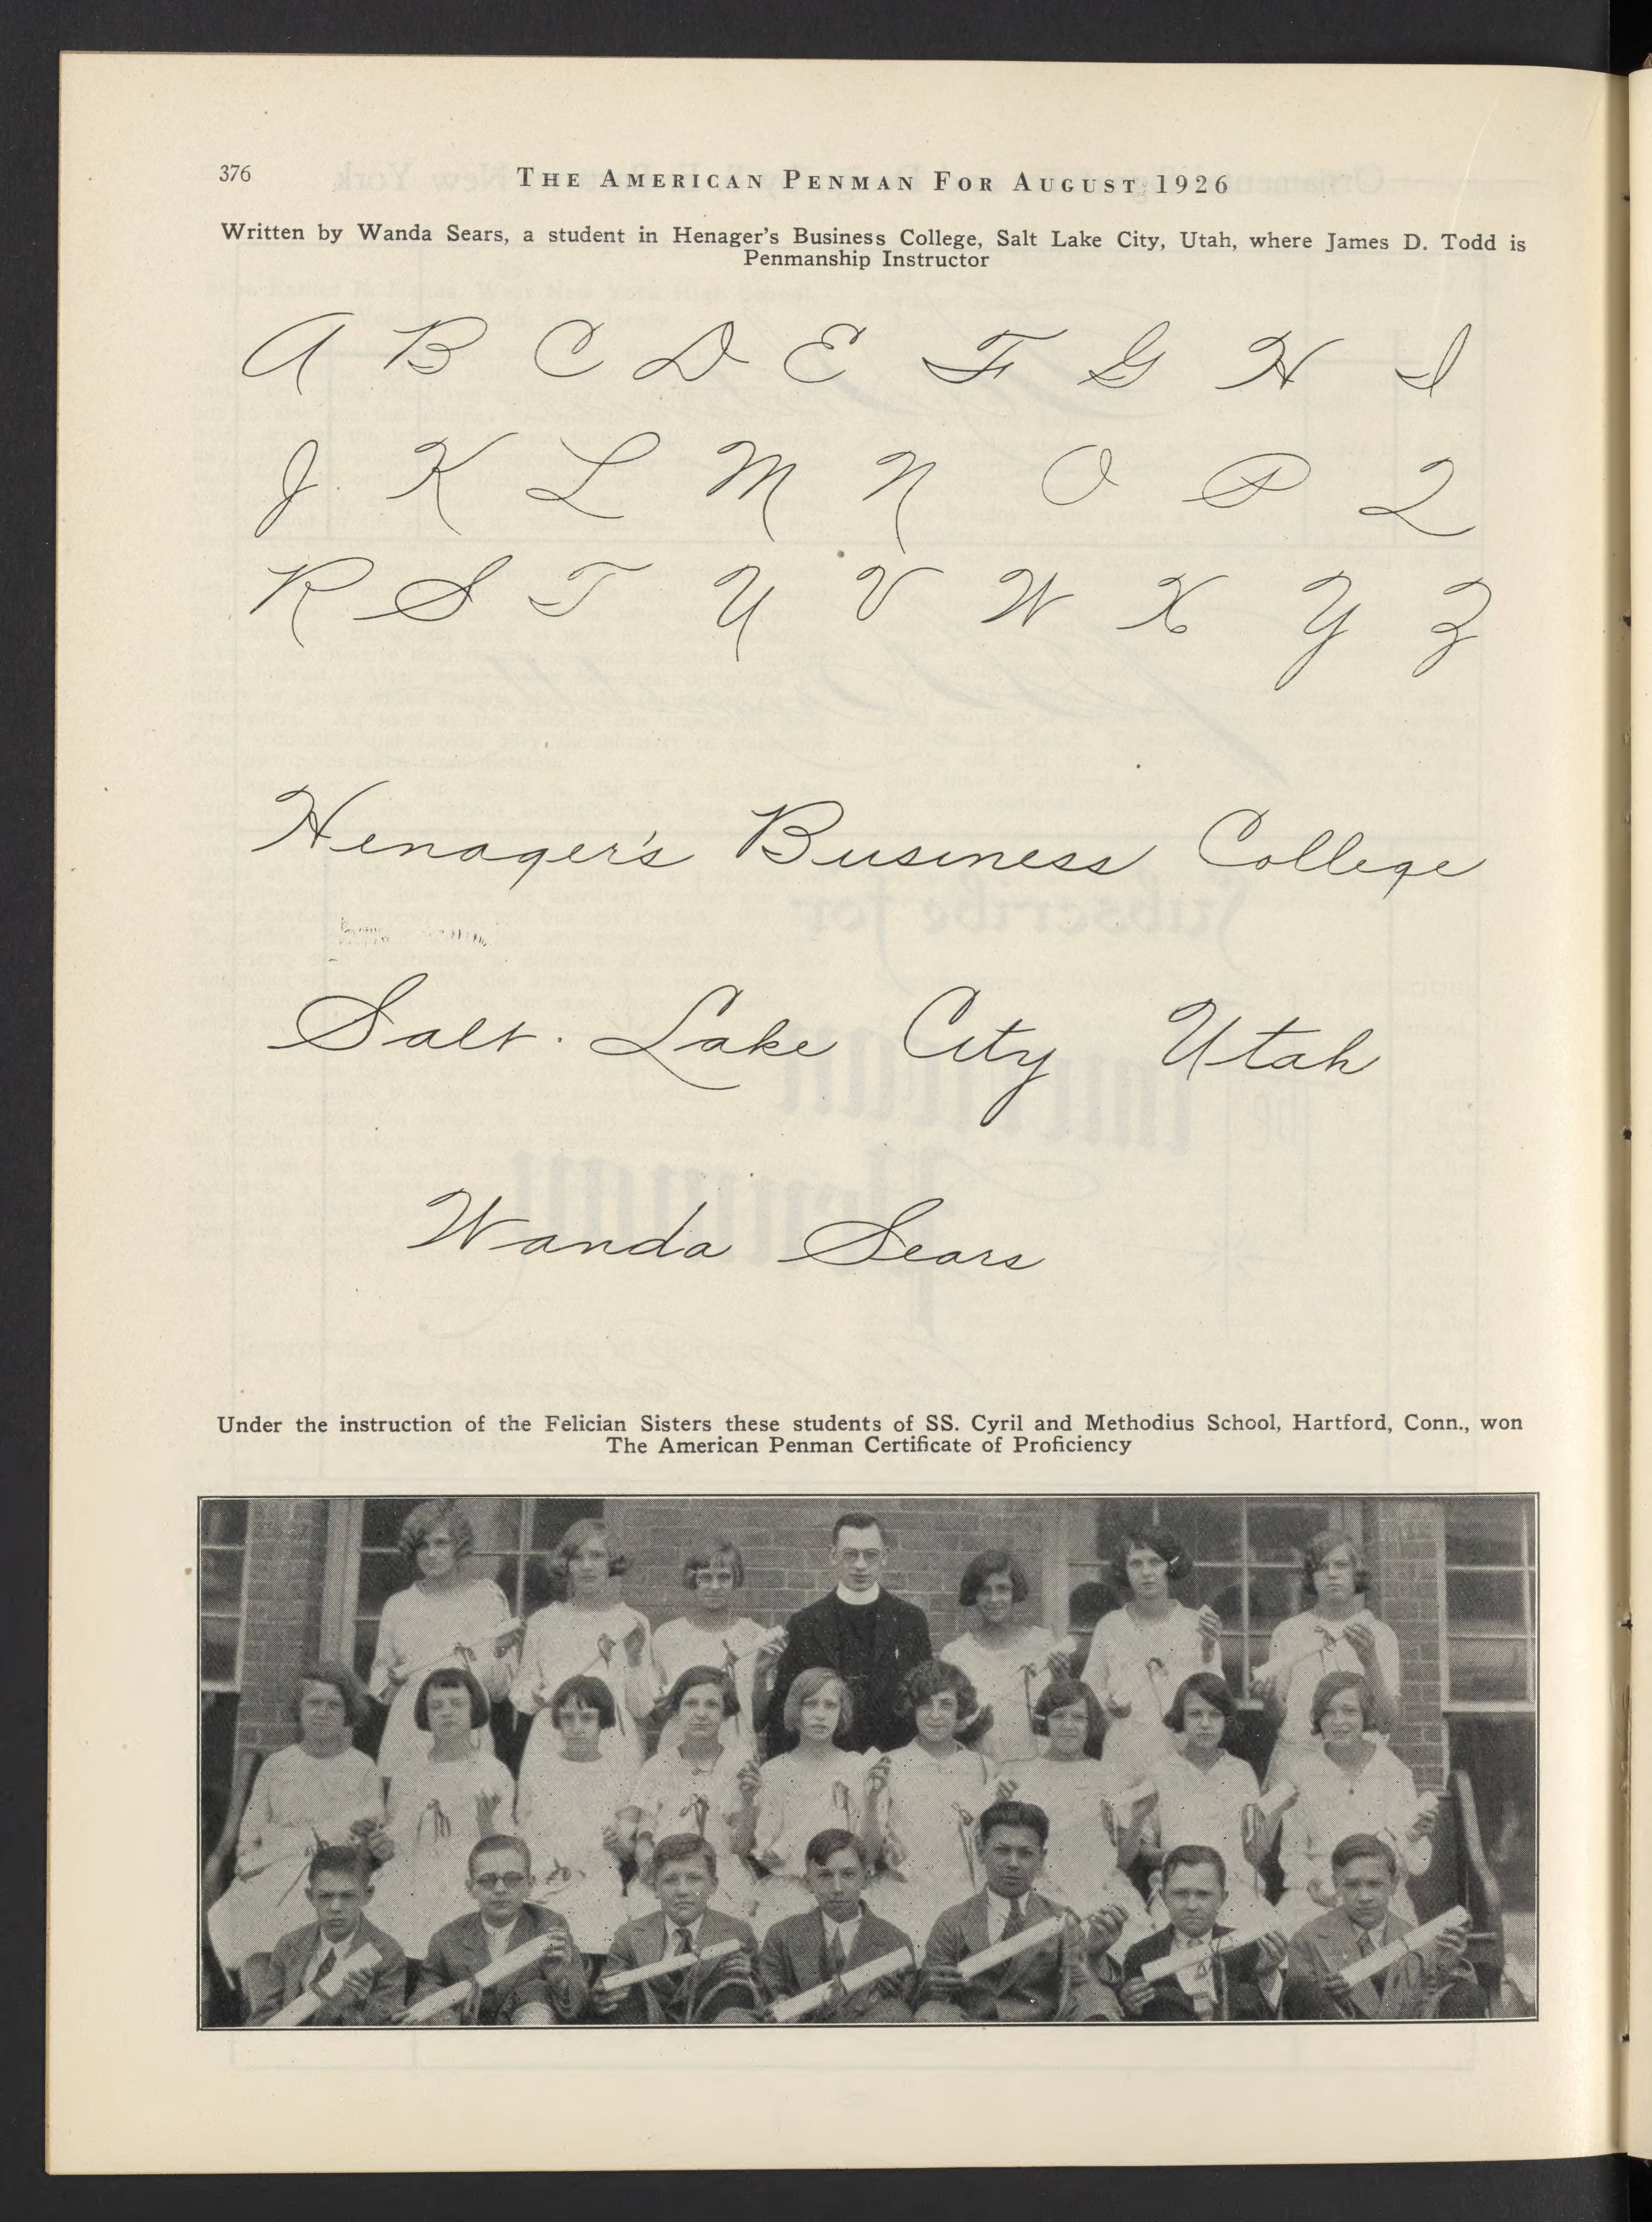 376
THE AMERICAN PENMAN FOR AUGUST 1926
Written by Wanda Sears, a student in Henager's Business College, Salt Lake City, Utah, where James D. Todd is
Penmanship Instructor
A B C D E F G H I
J K L M N O P Q
R S T U V W X Y Z
Henager's Business College
Salt Lake City Utah
Wanda Sears
Under the instruction of the Felician Sisters these students of SS. Cyril and Methodius School, Hartford, Conn., won
The American Penman Certificate of Proficiency